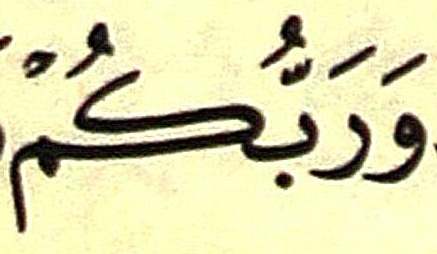 وَرَبُّكُمْ